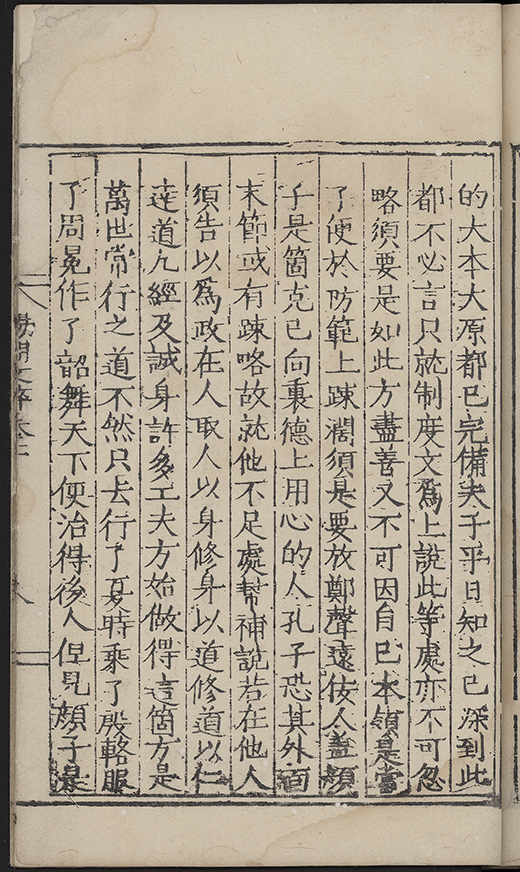 的大本大原都已完備夫子平日知之已深到此
都不必言只就制度文爲上說此等處亦不可忽
略須要是如此方盡善又不可因自己本領是當
了便於防範上疎濶須是要放鄭聲遠佞人盖顏
子是箇克己向裏德上用心的人孔子恐其外面
末節或有疎略故就他不足處幫補說若在他人
須告以爲政在人取人以身修身以道修道以仁
達道九經及誠身許多工夫方始做得這箇方是
萬世常行之道不然只去行了夏時乘了殷輅服
了周冕作了韶舞天下便治得後人但見顏子是
陽明文粹卷二